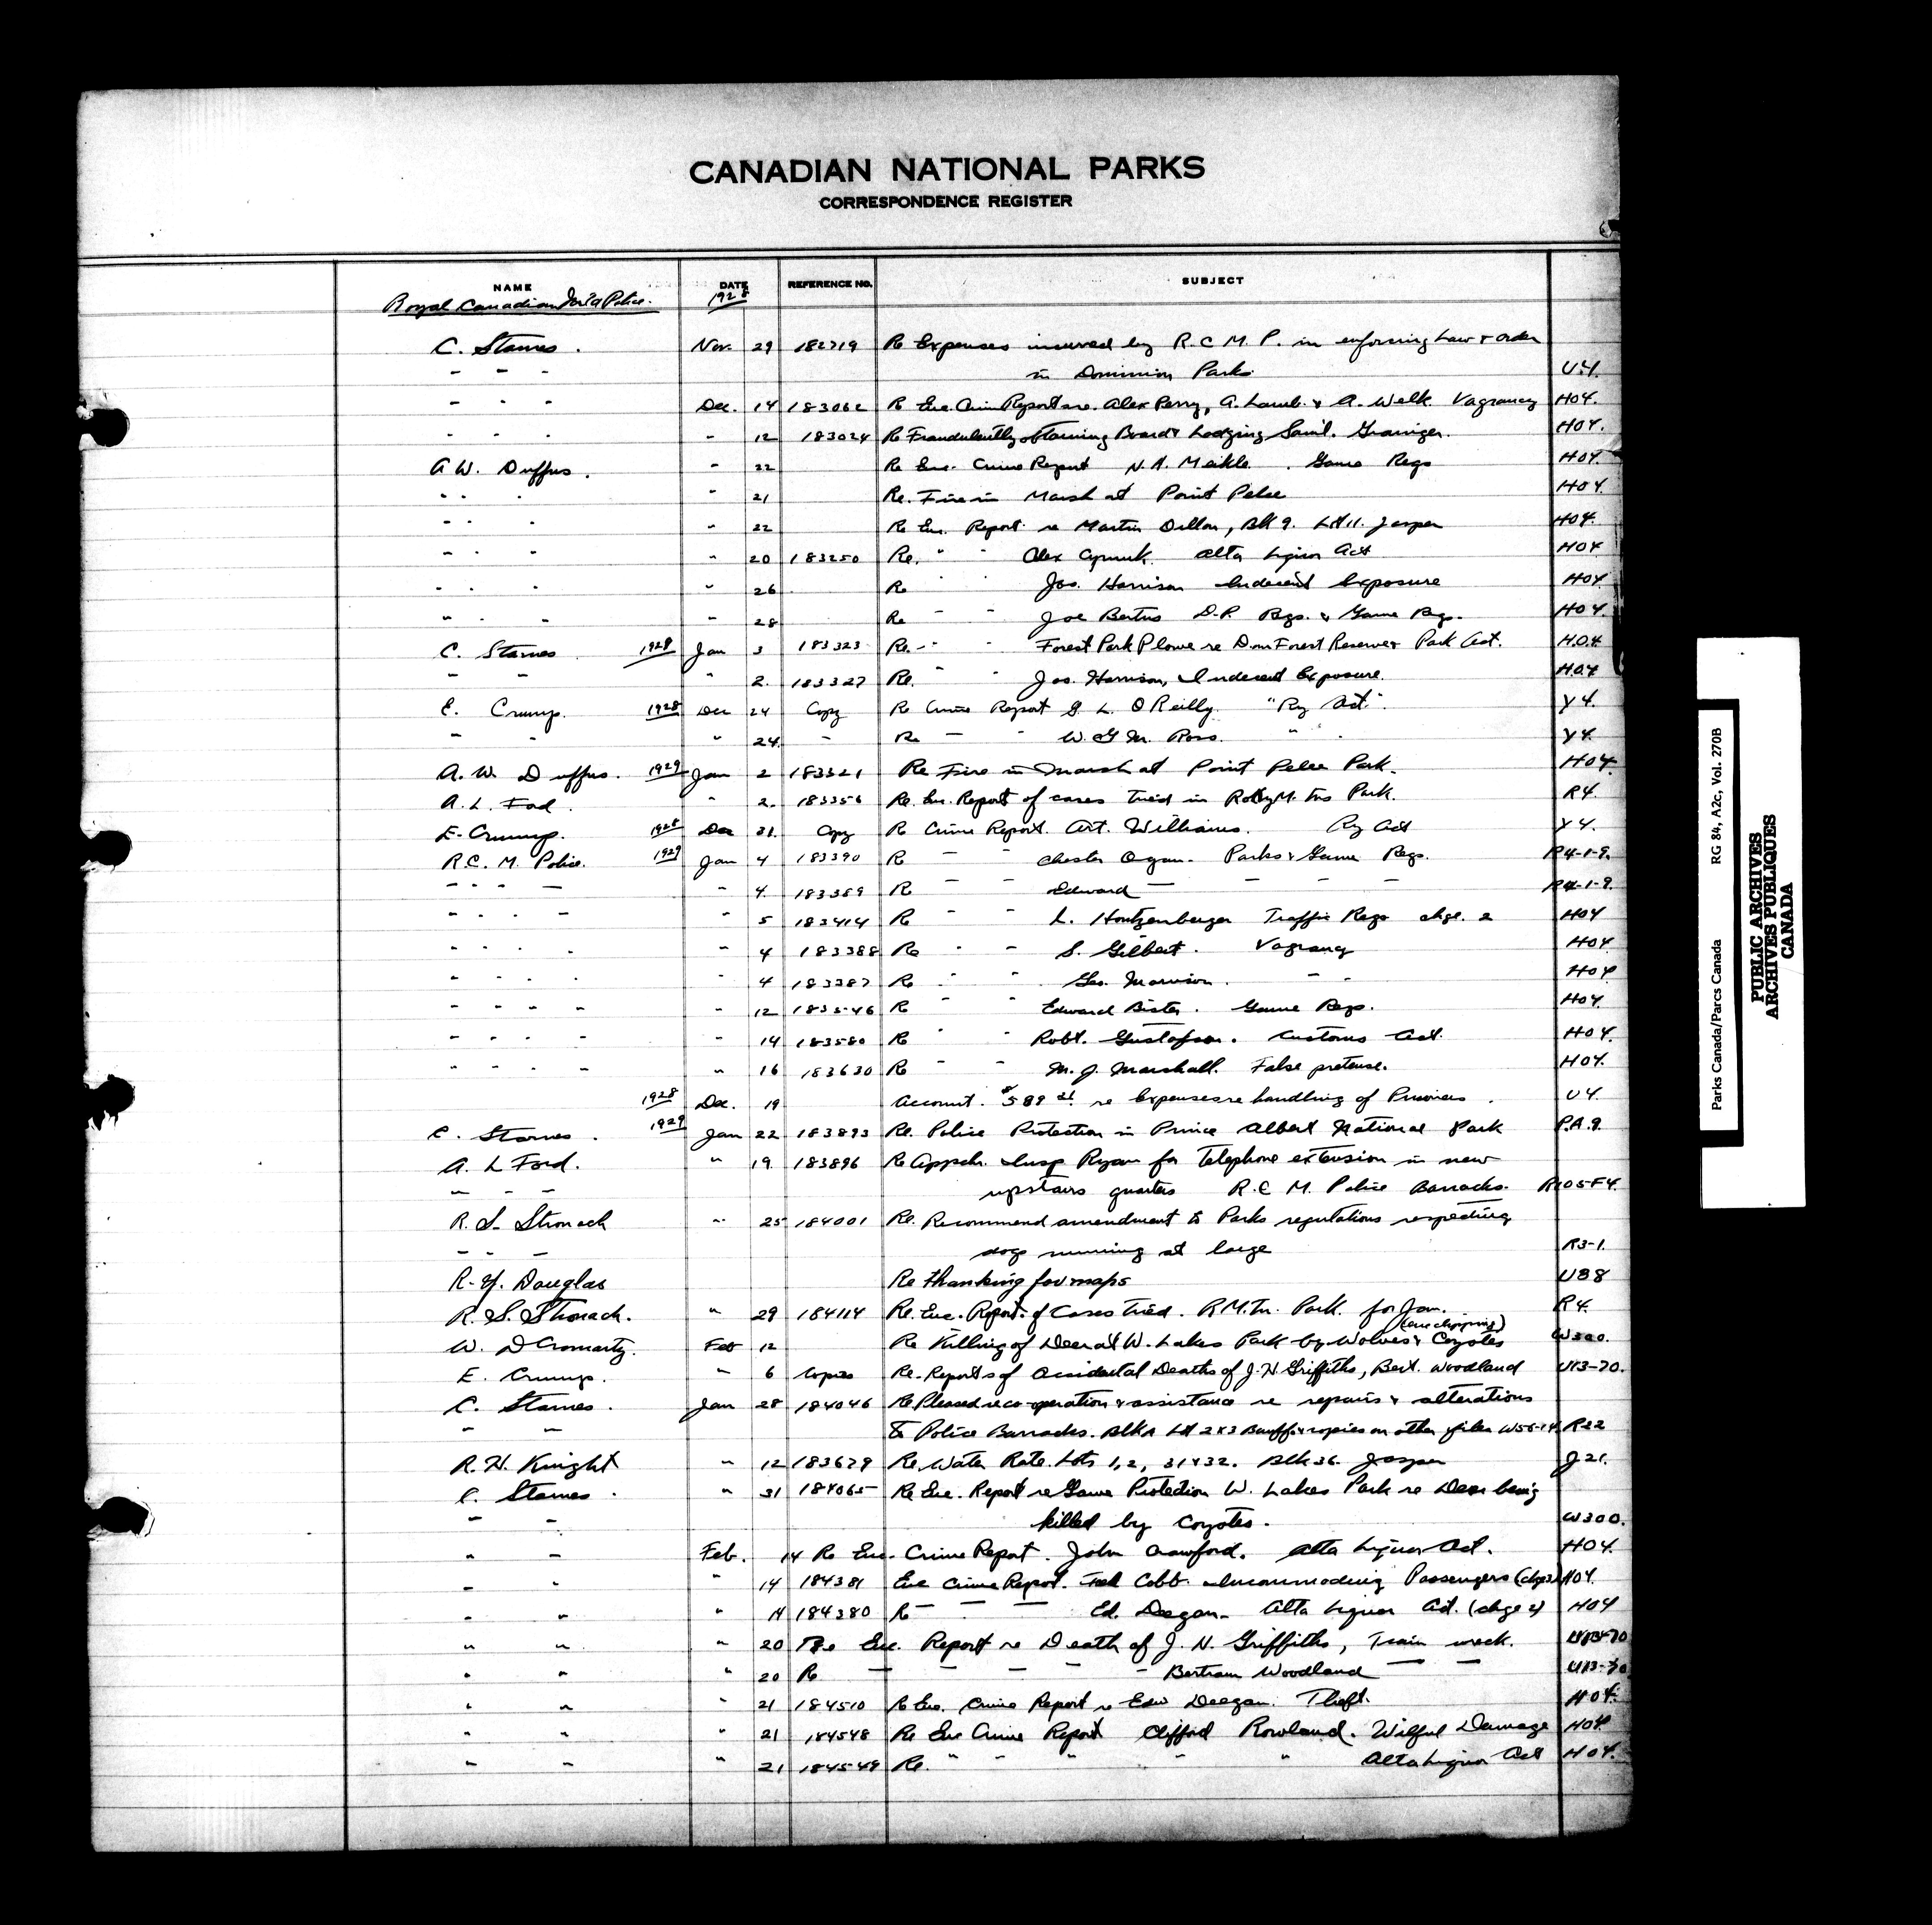 CANADIAN NATIONAL PARKS
CORRESPONDENCE REGISTER
NAME DATE REFERENCE NO. SUBJECT
Royal Canadian Police. 1928
C. Starnes. Nov. 29 182719 Re Expenses incurred by R.C.M.P. in enforcing Law & Order
" " " in Dominion Parks. U.4.
" " " Dec. 14 183062 Re Enc. Crim Reports re. Alex Perry, A. Lamb. & A. Welk. Vagrancy H04.
" " " " 12 183024 Re Fraudulently obtaining Board & Lodging Saml. Grainger. H04.
A W. Duffus. " 22 Re Enc. Crime Report N. A. Meikle. Game Regs H04.
" " " " 21 Re. Fire in Marsh at Point Pelee H04.
" " " " 22 Re Enc. Report re Martin Dillon, Blk 9. Lot 11. Jasper H04.
" " " " 20 183250 Re. " " Alex Alta Liquor Act H04
" " " " 26 Re " " Jos. Harrison Indecent Exposure H04
" " " " 28 Re " " Joe Bertus D.P. Regs. & Game Regs. H04.
C. Starnes 1928 Jan 3 183323 Re " " Forest Park Plowe re Dom Forest Reserve & Park Act. H.04
" " " 2. 183327 Re. " " Jos. Harrison, Indecent Exposure. H.04
E. Crump. 1928 Dec 24 Copy Re Crime Report G. L. O'Reilly. "Ry Act". Y4.
" " " 24. " Re " " W. G. M. Ross. " " Y4.
A. W. Duffus. 1929 Jan 2 183321 Re Fire in Marsh at Point Pelee Park. H04.
A. L. Ford. " 2. 183356 Re. Enc. Report of cases tried in Rocky M. tns Park. R4.
E. Crump. 1928 Dec 31. Copy Re Crime Report. Art. Williams. Ry Act Y4.
R.C. M. Police. 1929 Jan 4 183390 Re " " Chester Ogan. Parks & Game Regs. R4-1-9.
" " " " " 4. 183389 Re Edward " " " " R4-1-9.
" " " " " 5 183414 Re " " L. Houtzenberger Traffic Regs chge. 2 H04
" " " " " 4 183388 Re " " S. Gilbert. Vagrancy H04
" " " " " 4 183387 Re " " Geo. Morrison. " " H04
" " " " " 12 183546 Re " " Edward Bister. Game Regs. H04.
" " " " " 14 183580 Re " " Robt. Gustafson. Customs Act. H04.
" " " " " 16 183630 Re " " M. J. Marshall. False pretense. H04.
1928 Dec. 19 Account. $589 21 re Expenses re handling of Prisoners. U4.
C. Starnes. 1929 Jan 22 183893 Re. Police Protection in Prince Albert National Park P.A.9.
A. L Ford. " 19. 183896 Re Appln. Insp Ryan for Telephone extension in new
" " " upstairs quarters R.C M. Police Barracks. R105-F4.
R. S. Stronach " 25 184001 Re. Recommend amendment to Parks regulations respecting
" " " dogs running at large R3-1.
R. Y. Douglas Re thanking for maps U38
R. S. Stronach. " 29 184114 Re. Enc. Report of Cases tried. R M. Tn. Park. for Jan. R4.
W. D Cromarty. Feb 12 Re Killing of Deer at W. Lakes Park by Wolves & Coyotes W300.
E. Crump. " 6 Copies Re. Reports of Accidental Deaths of J. H Griffiths, Bert. Woodland U13-70.
C. Starnes. Jan 28 184046 Re Pleased re co-operation & assistance re repairs & alterations
" " to Police Barracks. Blk A Lot 2 & 3 Banff & copies on other files W56-14 R22
R. H. Knight " 12 183679 Re. Water Rate. Lots 1, 2, 31 & 32. Blk 36. Jasper J21.
C. Starnes. " 31 184065 Re Enc. Report re Game Protection W. Lakes Park re Deer being
" " killed by Coyotes. W300.
" " Feb. 14 Re Enc. Crime Report. John Crawford. Alta Liquor Act. H04.
" " " 14 184381 Enc Crime Report. Cobb. Incommoding Passengers (chge 3) H04.
" " " 14 184380 Re " " " Ed. Deegan. Alta Liquor Act. (chge 2) H04
" " " 20 Re Enc. Report re Death of J. H. Griffiths, Train wreck. U13-70
" " " 20 Re " " " " " Bertram Woodland " " U13-70
" " " 21 184510 Re Enc. Crime Report re Edw Deegan. Theft. H04.
" " " 21 184548 Re Enc Crime Report Clifford Rowland. Wilful Damage H04.
" " " 21 184549 Re. " " " " " Alta Liquor Act H04.
Parks Canada/Parcs Canada RG 84, A2c, Vol. 270B
PUBLIC ARCHIVES
ARCHIVES PUBLIQUES
CANADA